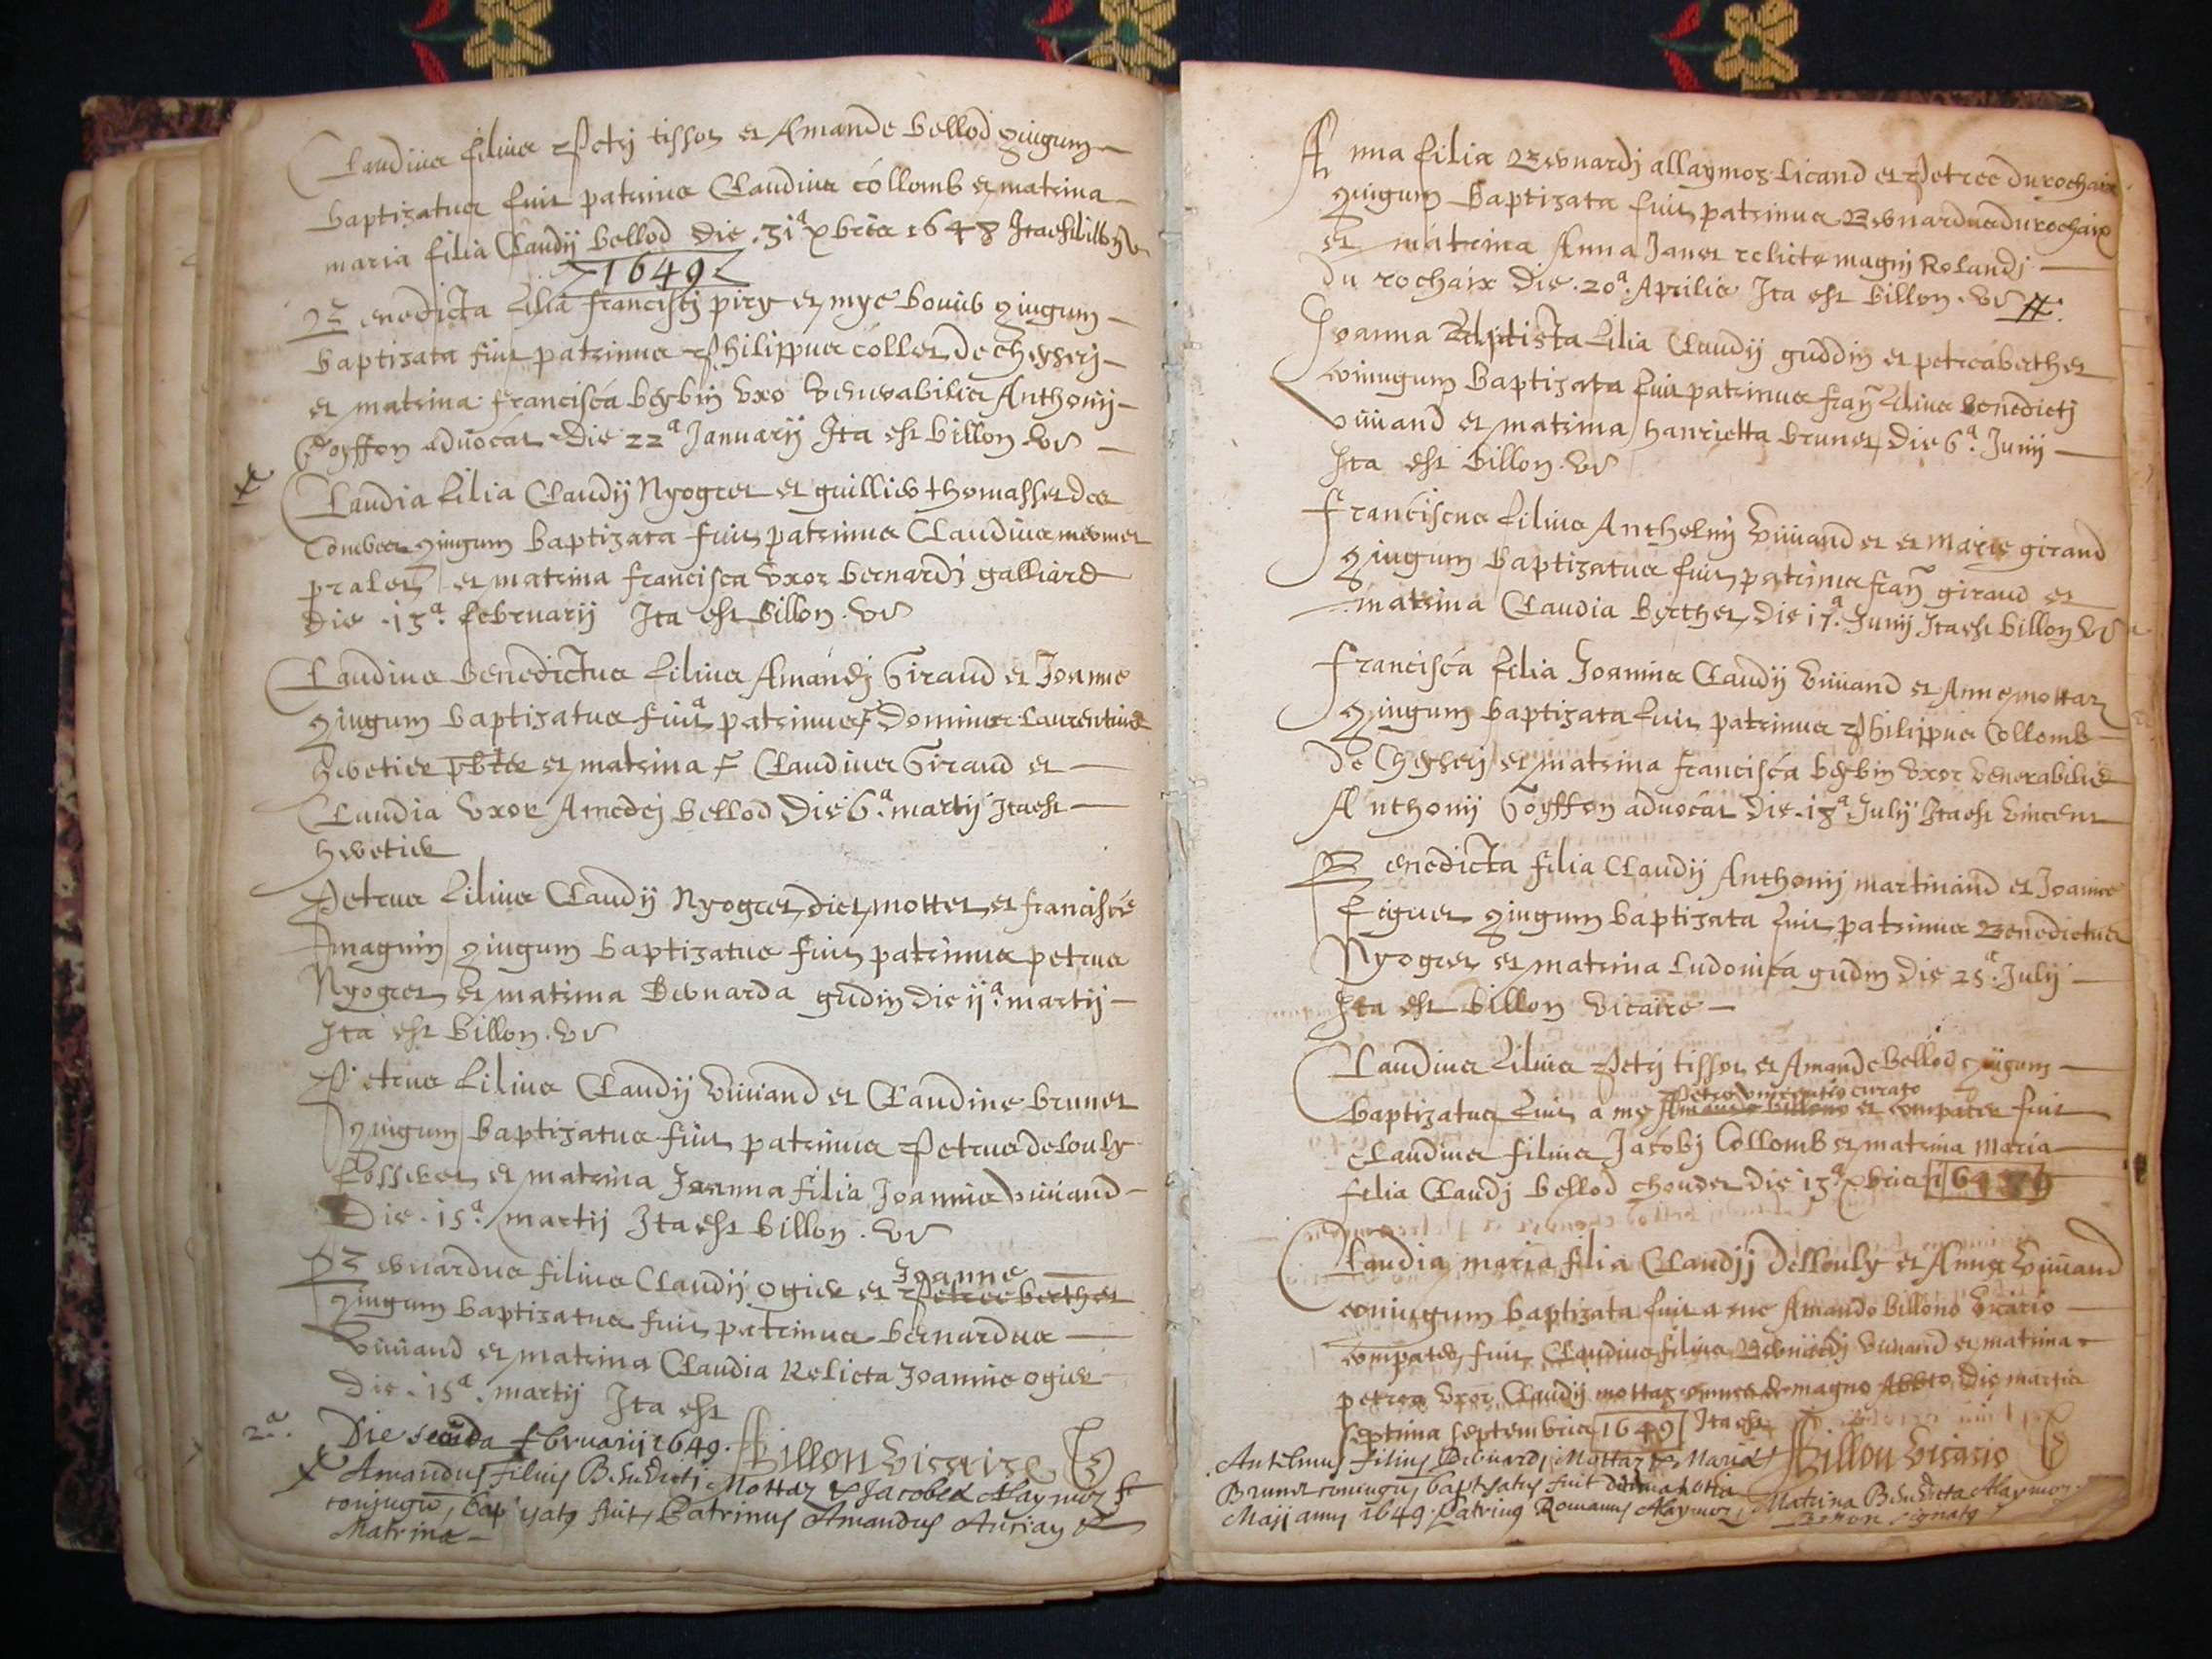 Claudius filius Petri tissot et Amande bellod giugum
baptizatus fuit patrinus Claudius collomb et matrina
maria filia Claudij bellod die .31a xbris 1648 Ita est billon vr
1649
Benedicta filia francisci piry et mye bouib giugum
baptizata fuit patrinus Philippus collet de cheysery
et matrina francisca begbin vxo venerabilis Anthonij
Goyffon aduocat die 22a Januarij Ita est billon vr
Claudia filia Claudij Nyogret et guillier thomasset des
Combes giugum baptizata fuit patrinus Claudius
pralet et matrina francisca vxor bernardi galliard
die .13a. februarij Ita est billon. vr
Claudius benedictus filius Amandi Giraud et Joanne
giugum baptizatus fuit patrinus Dominus Laurentius
hvetier pbter et matrina Claudius Giraud et
Claudia vxor Amedej bellod Die 6a. martij Ita est
hvetier
Petrus filius Claudij Nyogret dict mottet et francisce
magnin giugum baptizatus fuit patrinus petrus
Nyogret et matrina Bernarda gudin die ij a. martij
Ita est billon. vr
Petrus filius Claudij Viuand et Claudine brunet
giugum baptizatus fuit patrinus Petrus delouly
fosseret et matrina Joanna filia Joannis viuand
Die .15a. martij Ita est billon. vr
Bernardus filius Claudij ogier et Joanne Petree berthet
giugum baptizatus fuit patrinus bernardus
Viuand et matrina Claudia Relicta Joannis ogier
die .15a. martij Ita est
2a. Die secunda februarij 1649. Billon Vicaire
Amandus filius Benedicti Mottaz & Jacobea Alaymoz
conjugu, bap yatq fuit, Patrinus Amandus Ancian &
Matrina
Anna filia Bernardj allaymoz Licand et Petree durochaix
giugum baptizata fuit patrinus Bernardus durochaix
et matrina Anna Janet relicte magni Rolandj
du rochaix Die .20a. Aprilis Ita est billon. vr
Joanna Baptista filia Claudij guddin et petrea berthet
coniugum baptizata fuit patrinus fran filius benedictj
viuand et matrina hanrietta brunet, die 6a. Junij
Ita est billon. vr
Franciscus filius Anthelmj Viuand et et Marie girand
giugum baptizatus fuit patrinus fran girand et
matrina Claudia berthet, die 17a. Junij Ita est billon vr
Francisca filia Joannis Claudij viuand et Anne mottaz
giugum baptizata fuit patrinus Philippus Collomb
de Cheysery et matrina francisca begbin vxor venerabilis
Anthonij Goyffon aduocat Die .18a. July Ita est vincent
Benedicta filia Claudij Anthonij martinand et Joanne
giugum baptizata fuit patrinus Benedictus
Nyogret et matrina Ludouica gudin die 25a. July
Ita est billon vicaire
Claudius filius Petrj tissot et Amande bellod giugum
Petro vincentio curato
baptizatus fuit a me Amando billono et compater fuit
Claudius filius Jacobj Collomb et matrina maria
filia Claudj bellod chouder die 13a xbris
Claudia maria filia Claudij dellouly et Anne viuand
coniugum baptizata fuit a me Amando billono vicario
compater fuit Claudius filius Bernardj viuand et matrina
petrea vxor Claudij mottaz die martis
septima septembris 1649 Ita est Billon Vicario
Antelmus filius Bernardj Mottaz & Maria
Brunet coniugu, baptysatus fuit
Maij anni 1649. Patrinus Romanus Alaymoz, Matrina Benedicta Alaymoz